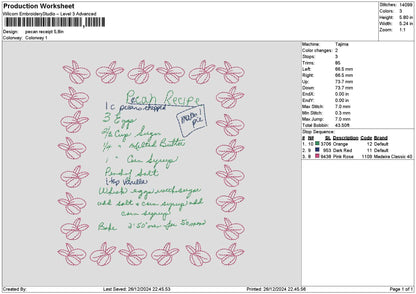 Production Worksheet
Wilcom EmbroideryStudio – Level 3 Advanced
Design: pecan receipt 5.8in
Colorway: Colorway 1
Stitches: 14099
Colors: 3
Height: 5.80 in
Width: 5.24 in
Zoom: 1:1
Machine: Tajima
Color changes: 2
Stops: 3
Trims: 85
Left: 66.5 mm
Right: 66.5 mm
Up: 73.7 mm
Down: 73.7 mm
EndX: 0.00 in
EndY: 0.00 in
Max Stitch: 7.0 mm
Min Stitch: 0.3 mm
Max Jump: 7.0 mm
Total Bobbin: 43.50ft
Stop Sequence:
# N# St. Description Code Brand
1. 10 3706 Green 12 Default
2. 9 953 Dark Red 11 Default
3. 8 9438 Pink Rose 1108 Madeira Classic 40
Pecan Recipe
1 c pecans chopped
3 Eggs
pecan pie
2/3 Cup Sugar
1/4 " Melted Butter
1 " Corn Syrup
Pinch of Salt
1 tsp Vanilla
Whisk eggs with sugar
add salt + corn syrup add
corn syrup
Bake 350 oven for 50 min
Created By:
Last Saved: 26/12/2024 22.45.53
Printed: 26/12/2024 22.45.56
Page 1 of 1